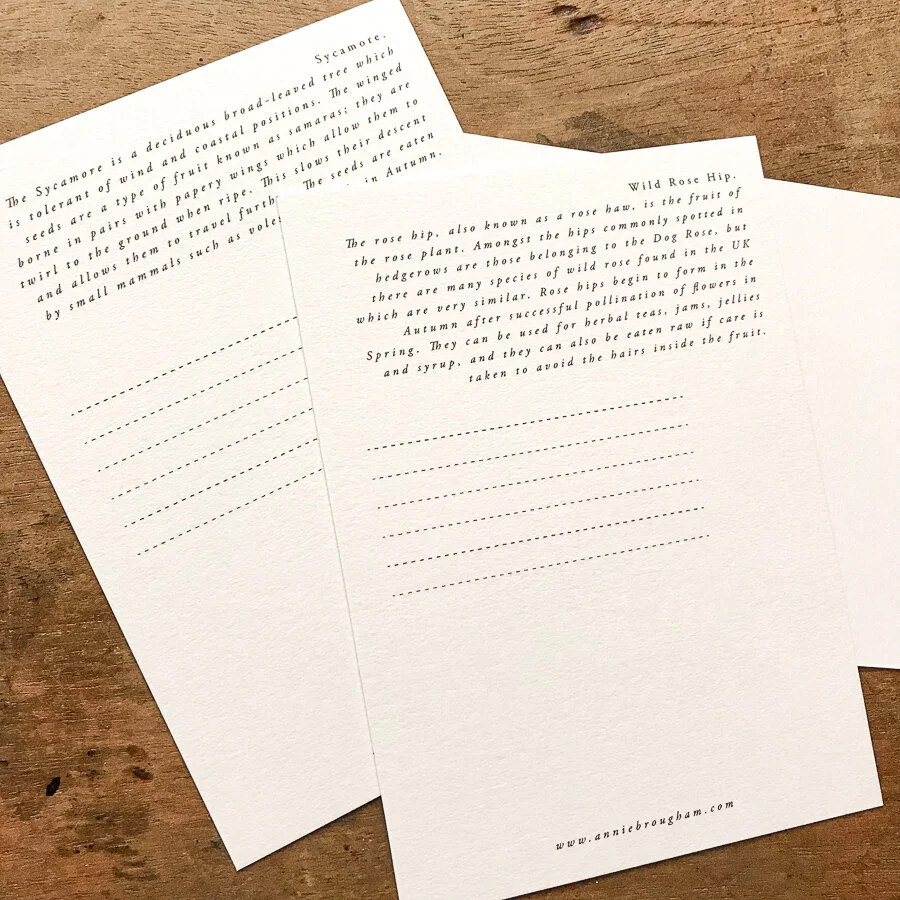 Sycamore.
The Sycamore is a deciduous broad-leaved tree which
is tolerant of wind and coastal positions. The winged
seeds are a type of fruit known as samaras; they are
borne in pairs with papery wings which allow them to
twirl to the ground when ripe. This slows their descent
and allows them to travel The seeds are eaten
by small mammals such as in Autumn.
Wild Rose Hip.
The rose hip, also known as a rose haw, is the fruit of
the rose plant. Amongst the hips commonly spotted in
hedgerows are those belonging to the Dog Rose, but
there are many species of wild rose found in the UK
which are very similar. Rose hips begin to form in the
Autumn after successful pollination of flowers in
Spring. They can be used for herbal teas, jams, jellies
and syrup, and they can also be eaten raw if care is
taken to avoid the hairs inside the fruit.
www.anniebrougham.com